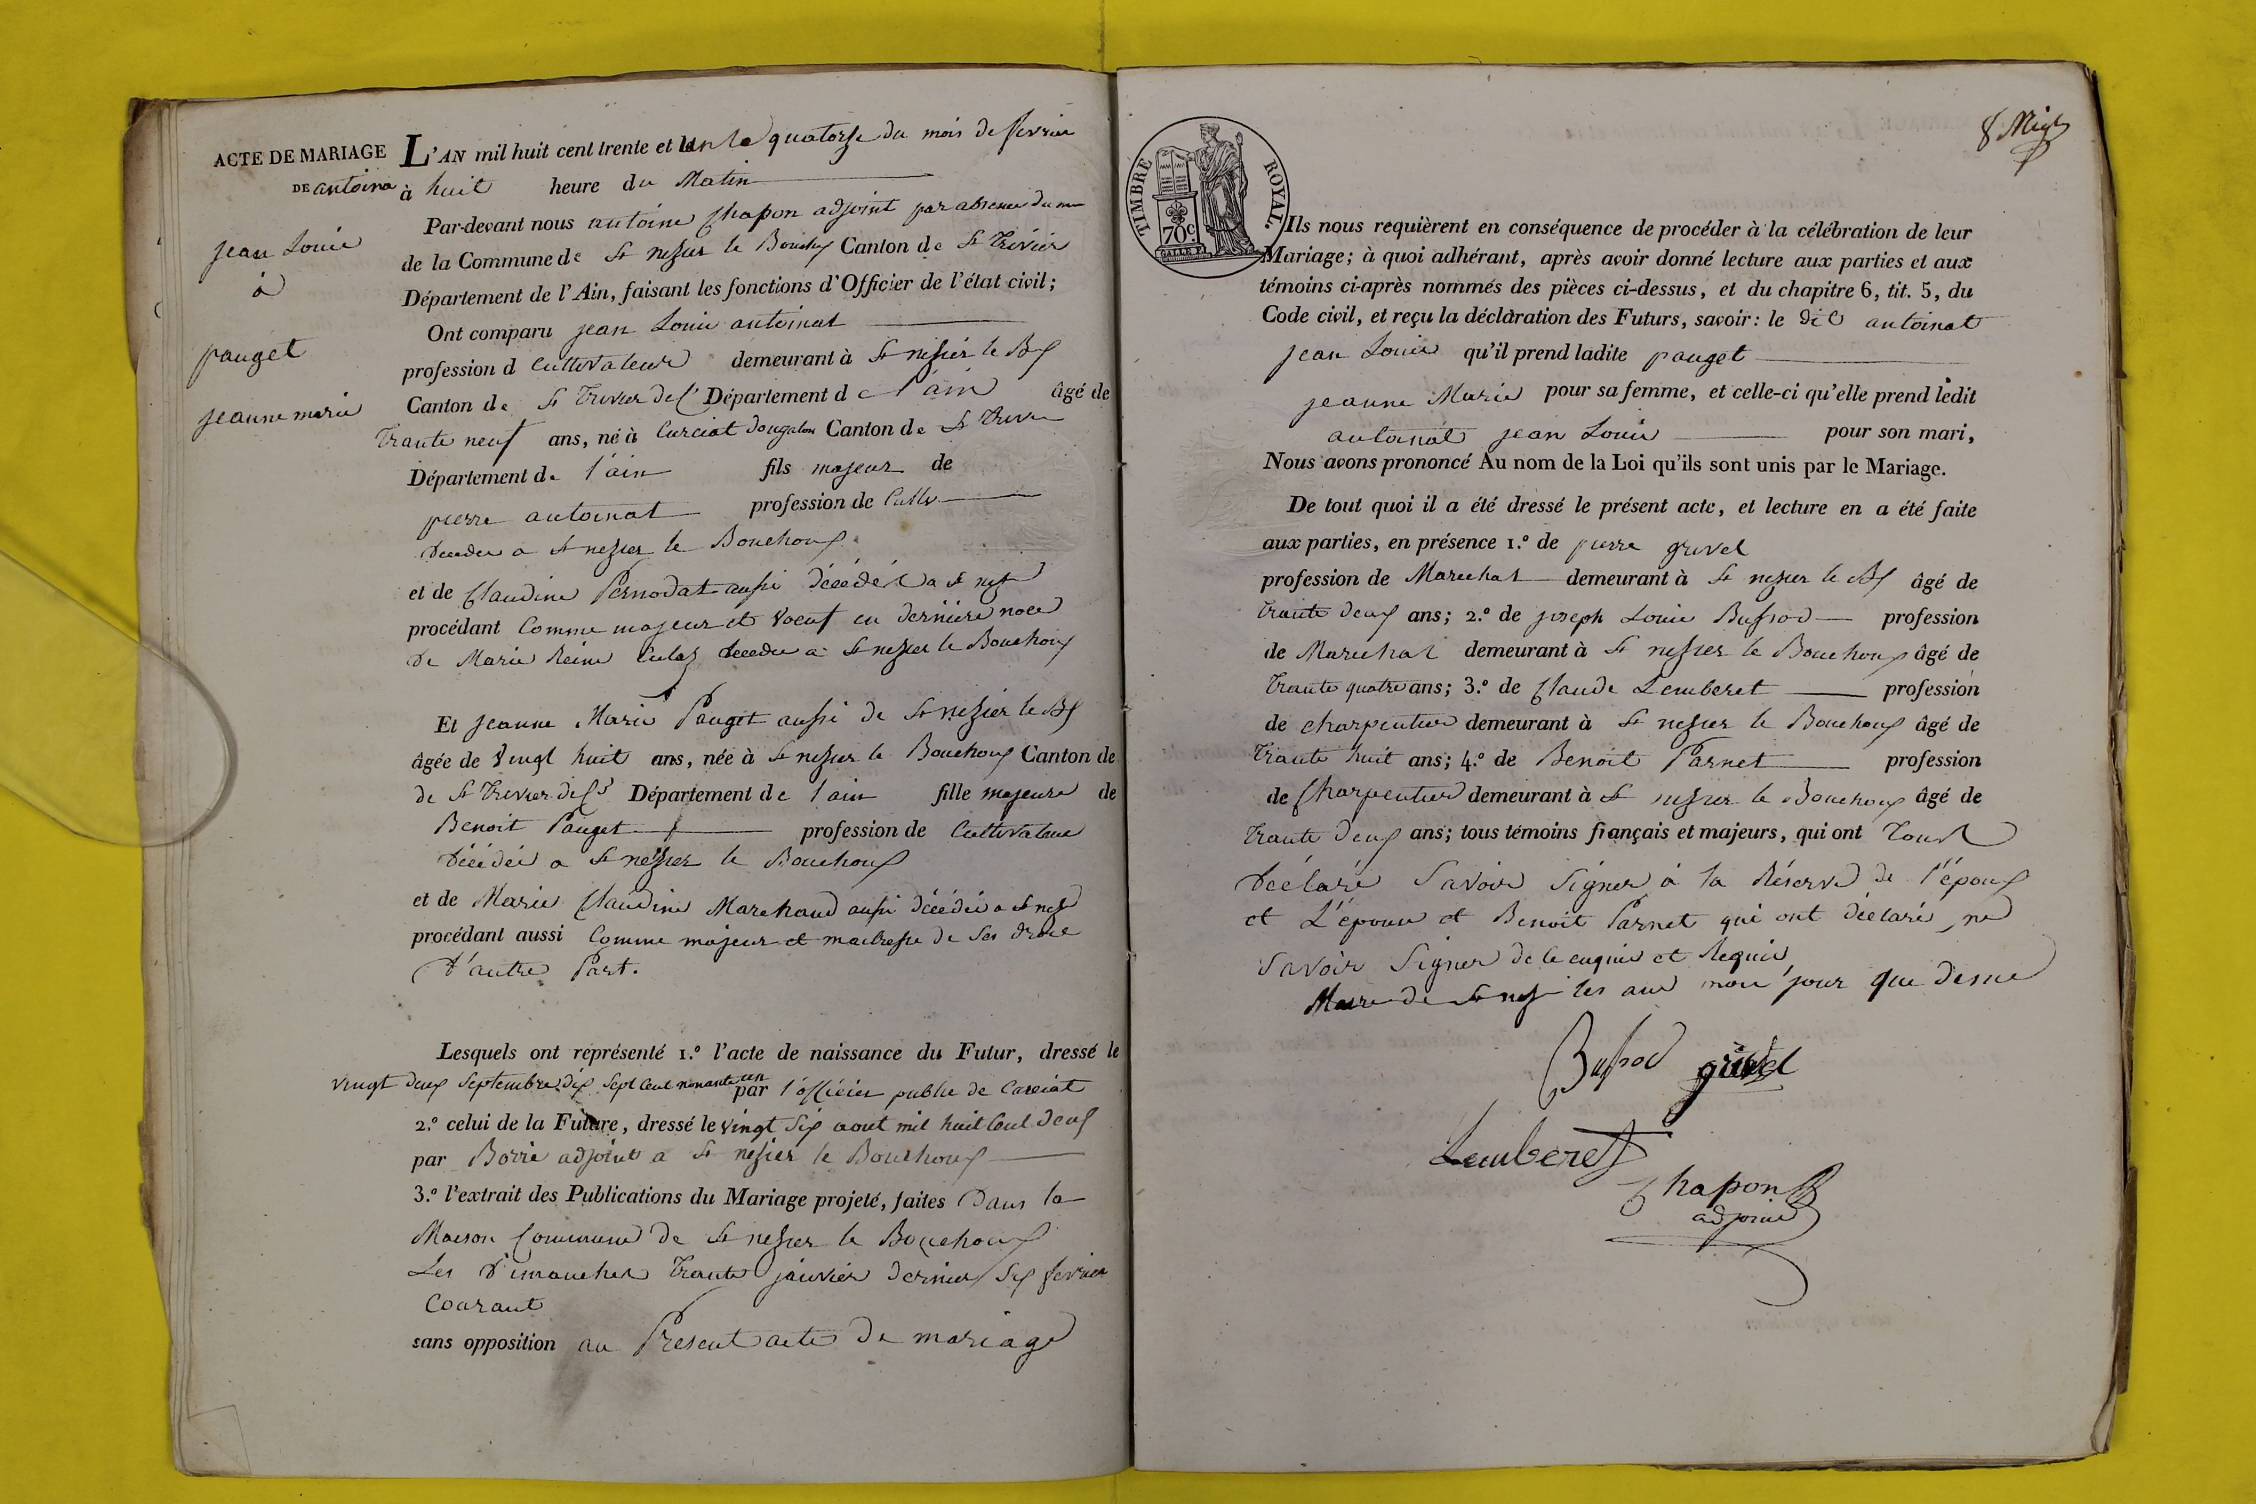 ACTE DE MARIAGE
DE antoina
jean Louis
à
pauget
jeanne marie
L'AN mil huit cent trente et un le quatorze du mois de fevrier
à huit heure du Matin
Par-devant nous antoine Chapon adjoint par absence du
de la Commune de St nesier le Bouchx Canton de St Trivier
Département de l'Ain, faisant les fonctions d'Officier de l'état civil;
Ont comparu jean Louis antoinat
profession d Cultivateur demeurant à St nesier le Bx
Canton de St Trivier de C Département d e l'ain âgé de
trante neuf ans, né à Curciat dongalon Canton de St Trivie
Département de l'ain fils majeur de
pierre antoinat profession de Cultr
décédé a St nesier le Bouchoux
et de Claudine Pernodat aussi décédée a St nesr
procédant Comme majeur et voeuf en derniere noce
De Marie Reine Culaz décédée a St nesier le Bouchoux
Et jeanne Marie Pauget aussi de St nezier le Bx
âgée de vingt huit ans, née à St nesier le Bouchoux Canton de
de St Trivier de Cs Département de l'ain fille majeure de
Benoit Pauget profession de Cultivateur
Décédé a St nesier le Bouchoux
et de Marie Claudine Marchand aussi décédée a St nesr
procédant aussi Comme majeur et maitresse de ses droit
D'autre Part.
Lesquels ont représenté 1.º l'acte de naissance du Futur, dressé le
vingt deux Septembre dix Sept Cent nonante un par l'officier public de Curciat
2.º celui de la Future, dressé le vingt Six aout mil huit Cent deux
par Borre adjoint a St nesier le Bouchoux
3.º l'extrait des Publications du Mariage projeté, faites Dans la
Maison Commune de St nesier le Bouchoux
Les Dimanches trante janvier dernier Six fevrier
Courant
sans opposition au Present acte De mariage
TIMBRE ROYAL.
70c
8
Ils nous requièrent en conséquence de procéder à la célébration de leur
Mariage; à quoi adhérant, après avoir donné lecture aux parties et aux
témoins ci-après nommés des pièces ci-dessus, et du chapitre 6, tit. 5, du
Code civil, et reçu la déclaration des Futurs, savoir: le dit antoinat
jean Louis qu'il prend ladite pauget
jeanne Marie pour sa femme, et celle-ci qu'elle prend ledit
antoinat jean Louis pour son mari,
Nous avons prononcé Au nom de la Loi qu'ils sont unis par le Mariage.
De tout quoi il a été dressé le présent acte, et lecture en a été faite
aux parties, en présence 1.º de pierre grivel
profession de Marechal demeurant à St nesier le Bx âgé de
trante deux ans; 2.º de joseph Louis Bussod profession
de Marechal demeurant à St nesier le Bouchoux âgé de
trante quatre ans; 3.º de Claude Lemberet profession
de charpentier demeurant à St nesier le Bouchoux âgé de
trante huit ans; 4.º de Benoit Parnet profession
de Charpentier demeurant à St nesier le Bouchoux âgé de
trante deux ans; tous témoins français et majeurs, qui ont tous
Déclaré Savoir Signer à la Réserve de l'époux
et L'épouse et Benoit Parnet qui ont déclaré ne
Savoir Signer de ce enquis et Requis
Maire de St nesr les ans moi jour que dessus
Bussod grivel
Lemberet
Chapon
adjoint